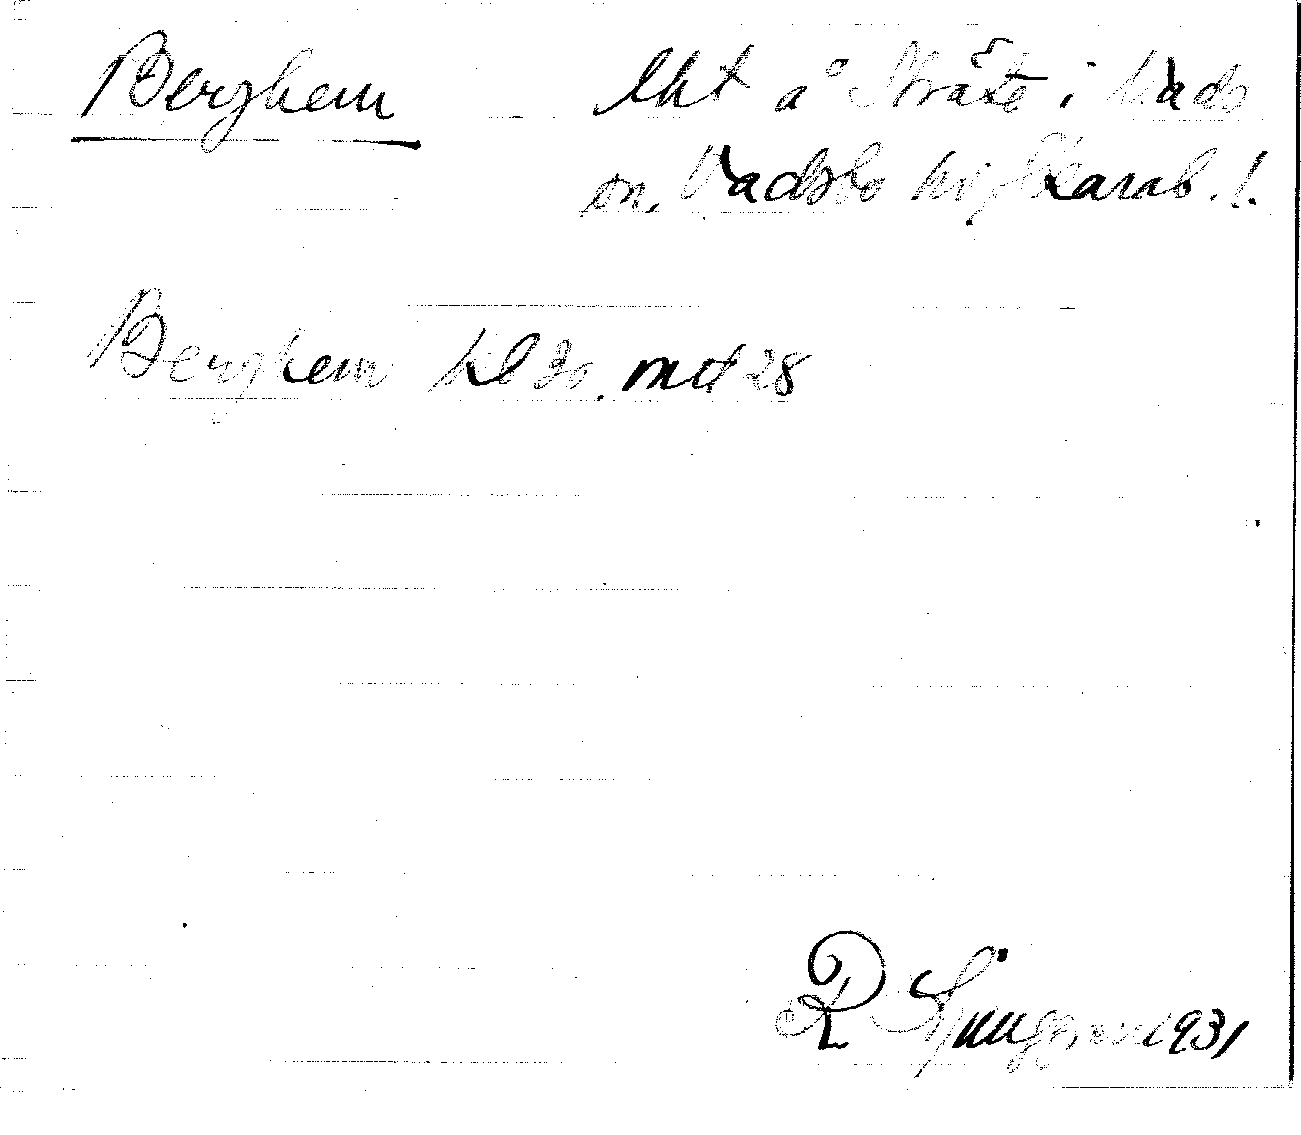 Berghem lht å Sträte i Mads
sn. Vadsbo hd, Skarab. l.
Berghem kl 30. mot 28
R Ljunggren 1931